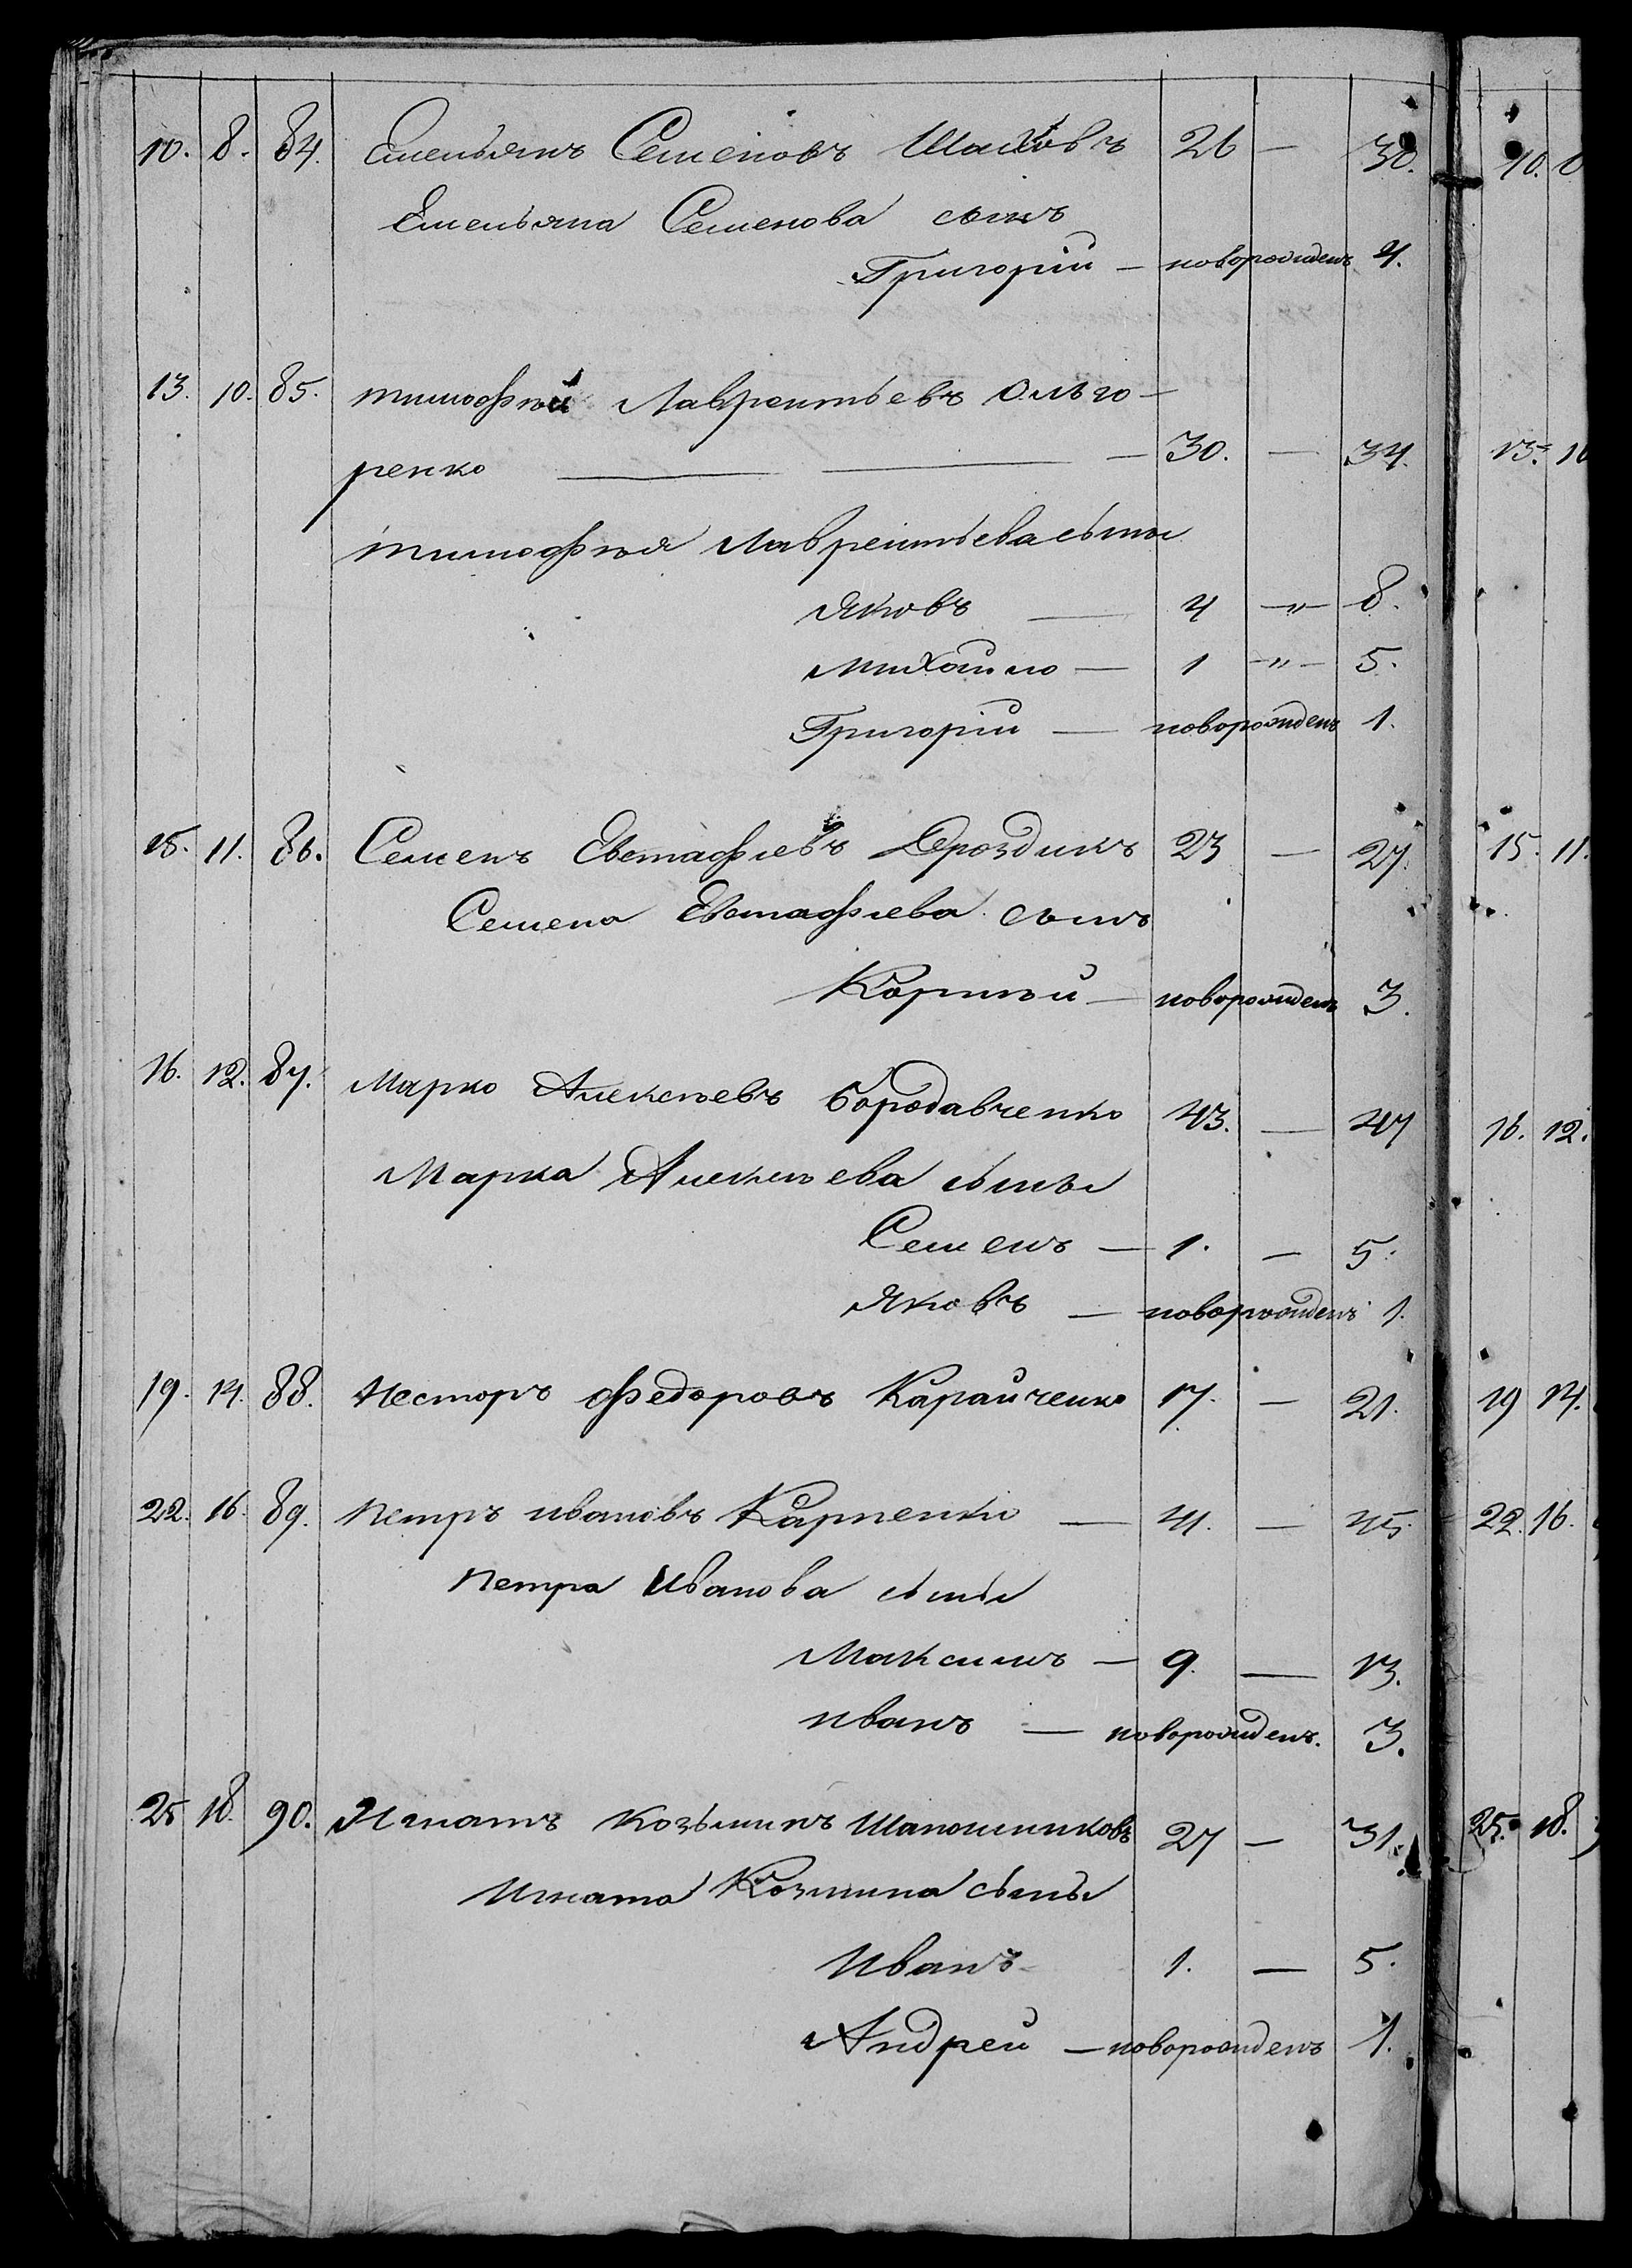 10. 8. 84. Емельянъ Семеновъ 26 — 30.
Емельяна Семенова сынъ
Григорій — новорожденъ 4.
13. 10. 85. Тимофѣй Лаврентьевъ Ольго-
ренко — 30. — 34.
Тимофѣя Лаврентьева сыны
Яковъ — 4 —„— 8.
Михайло — 1 —„— 5.
Григорій — новорожденъ 1.
15. 11. 86. Семенъ Евстафіевъ Дроздикъ 23 — 27.
Семена Евстафіева сынъ
Корнѣй — новорожденъ 3.
16. 12. 87. Марко Алексѣевъ Бородавченко 43. — 47
Марка Алексѣева сыны
Семенъ — 1. — 5.
Яковъ — новорожденъ 1.
19. 14. 88. Несторъ Федоровъ Карайченко 17. — 21.
22. 16. 89. Петръ Ивановъ Карпенко — 41. — 45.
Петра Иванова сыны
Максимъ — 9. — 13.
Иванъ — новорожденъ. 3.
25 18. 90. Игнатъ Козьминъ Шапошниковъ 27 — 31.
Игната Козмина сыны
Иванъ 1. — 5.
Андрей — новорожденъ 1.
10.
13. 10
15. 11.
16. 12.
19 14.
22. 16.
25. 18.